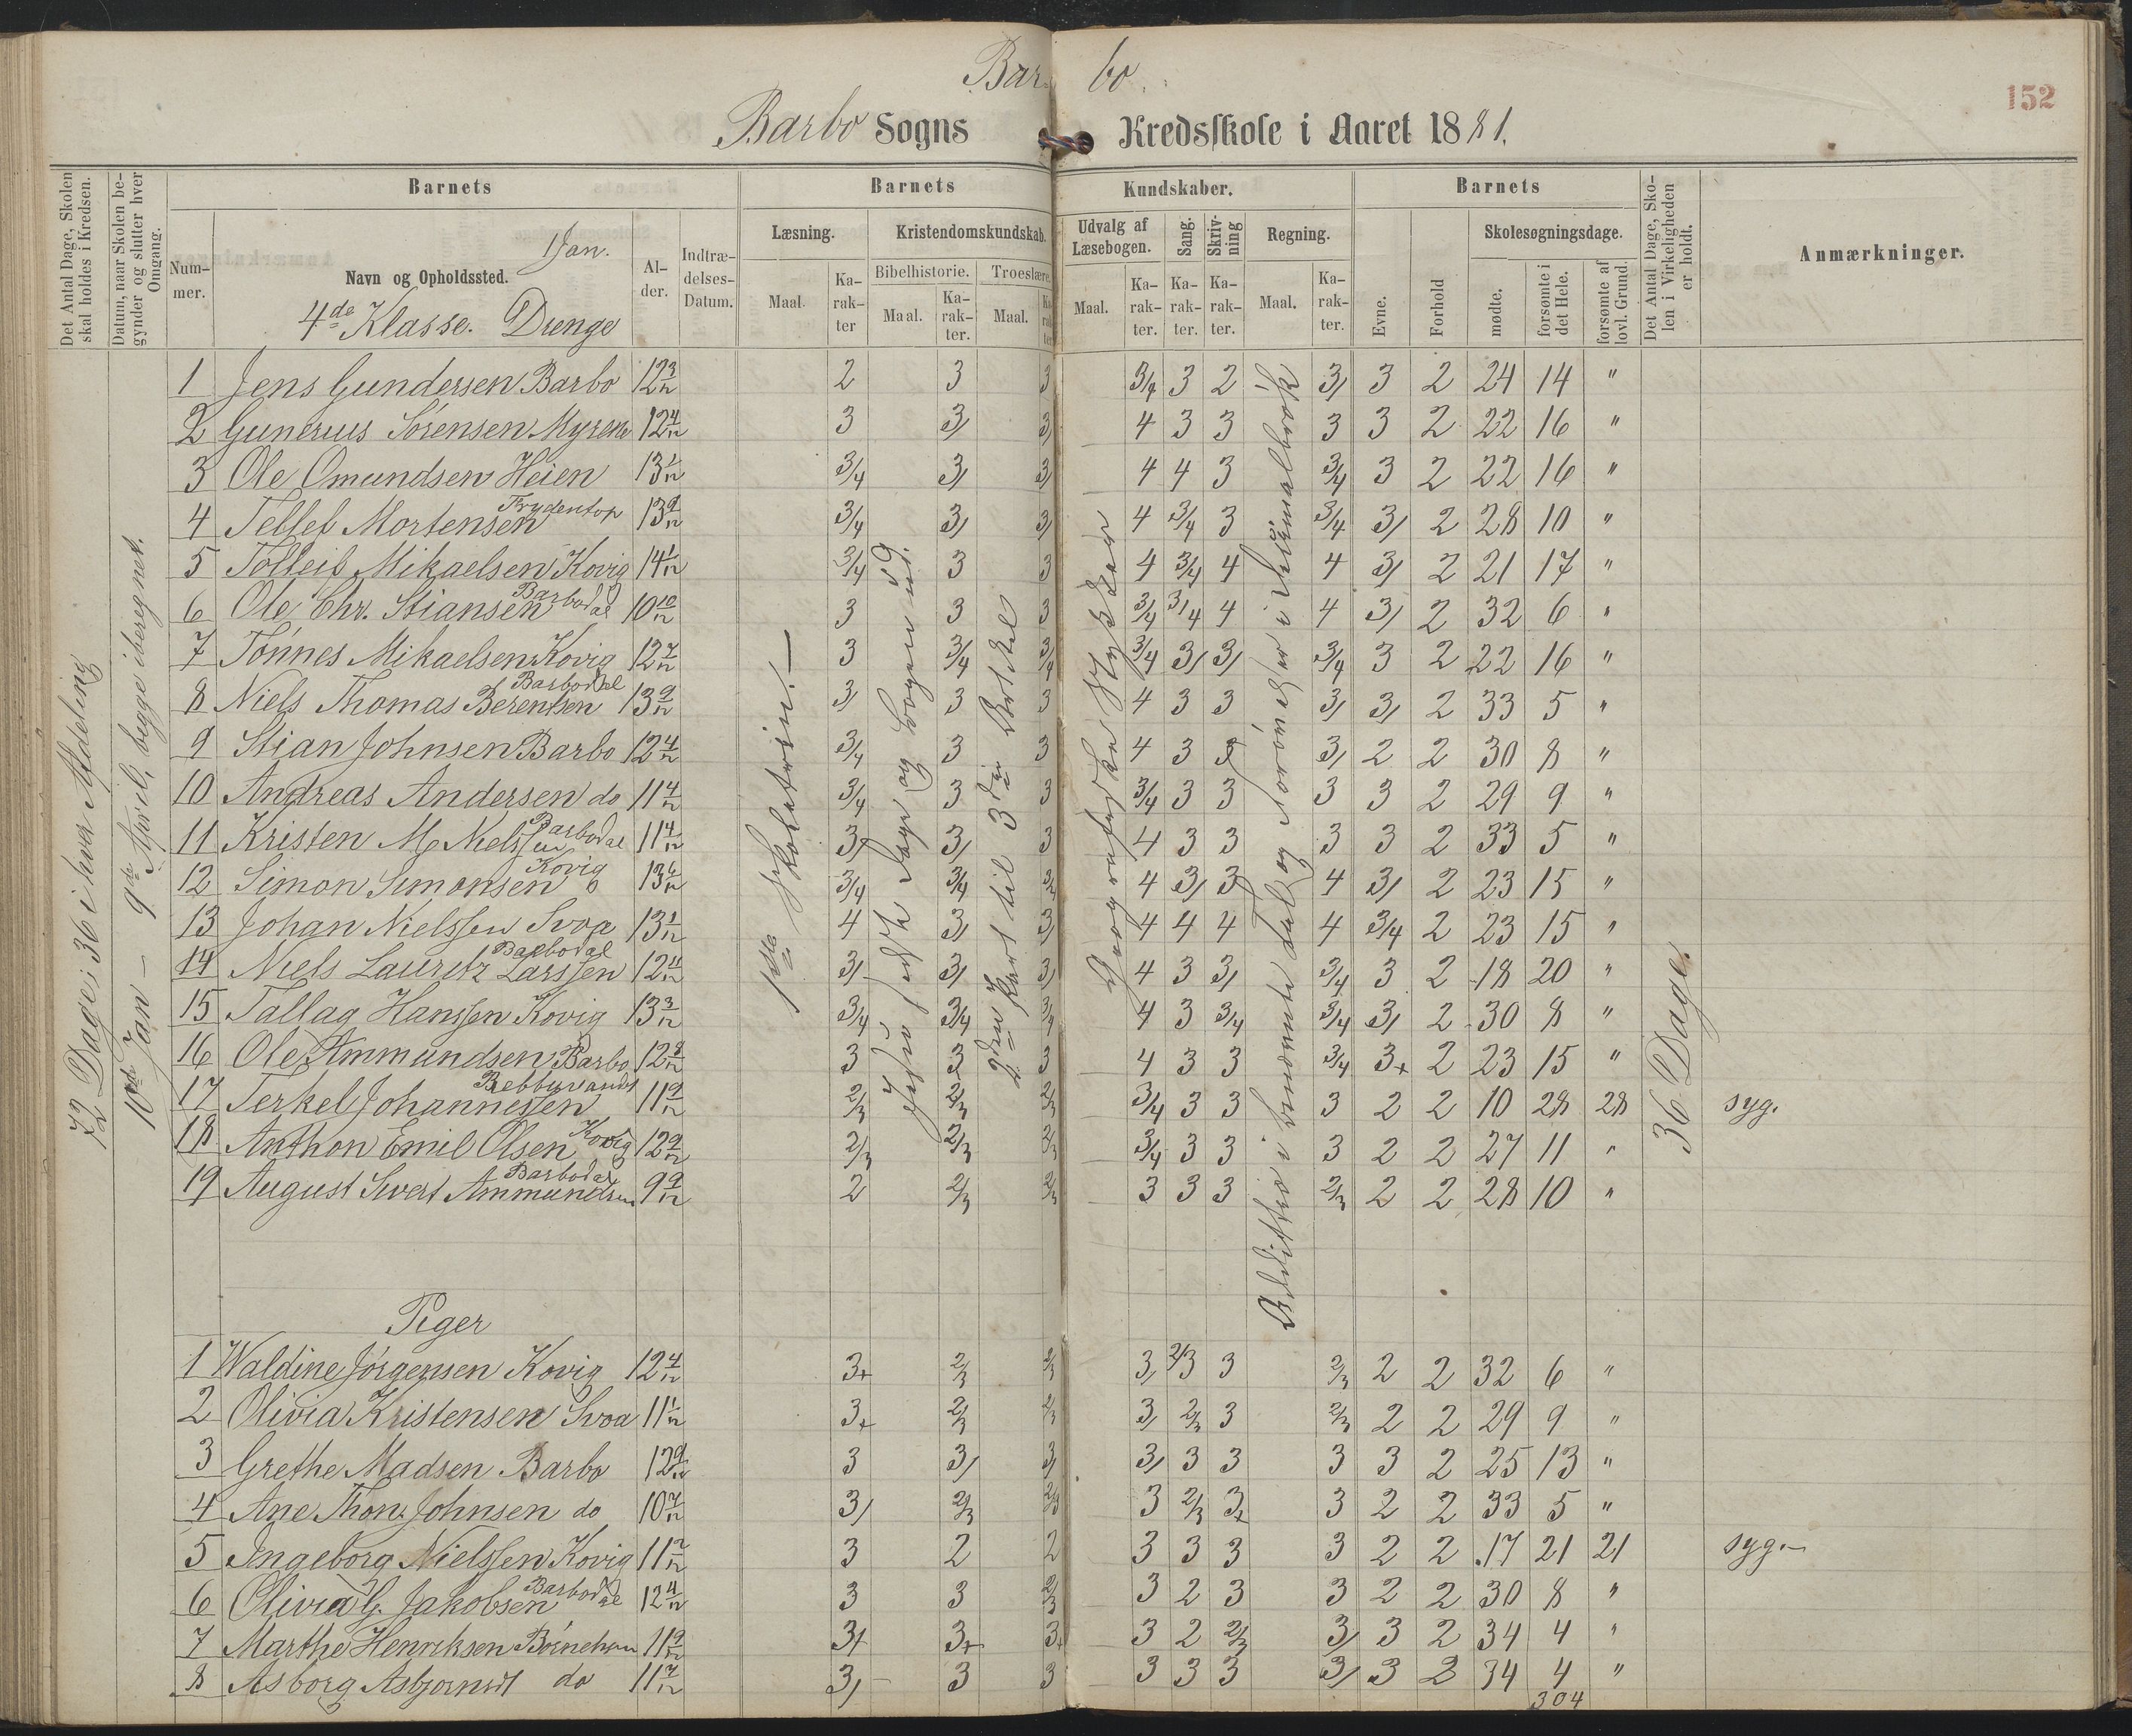 Barbo.
152
Barbo Sogns Kredsskole i Aaret 1881.
Det Antal Dage, Skolen skal holdes i Kredsen.
Datum, naar Skolen begynder og slutter hver Omgang.
Barnets
Barnets
Kundskaber.
Barnets
Det Antal Dage, Skolen i Virkeligheden er holdt.
Anmærkninger.
Nummer.
Navn og Opholdssted.
1 Jan.
Alder.
Indtrædelses-Datum.
Læsning.
Kristendomskundskab.
Udvalg af Læsebogen.
Sang.
Skrivning
Regning.
Evne.
Forhold
Skolesøgningsdage.
Bibelhistorie.
Troeslære.
Maal.
Karakter
Maal.
Karakter.
Maal.
Karakter
Maal.
Karakter.
Karakter.
Karakter.
Maal.
Karakter.
mødte.
forsømte i det Hele.
forsømte af lovl. Grund.
4de Klasse. Drenge
72 Dage; 36 i hver Afdeling
10de Jan – 9de April, begge iberegnet.
36 Dage.
1 Jens Gundersen Barbo 12 3/12 2 3 3 3/4 3 2 3/ 3 2 24 14 "
2 Gunerius Sörensen Myrene 12 4/12 3 3/ 3/ 4 3 3 3 3 2 22 16 "
3 Ole Omundsen Heien 13 1/12 3/4 3/ 3/ 4 4 3 3/4 3 2 22 16 "
4 Tellef Mortensen 13 9/12 3/4 3/ 3/ 4 3/4 3 3/4 3/ 2 28 10 "
5 Tolleif Mikaelsen Kovig 14 1/12 3/4 3 3 4 3/4 4 4 3/ 2 21 17 "
6 Ole Chr. Stiansen Barbodal 10 10/12 3 3 3 3/4 3/4 4 4 3/ 2 32 6 "
7 Tönnes Mikaelsen Kovig 12 7/12 3 3/4 3/4 3/4 3/ 3/ 3/4 3 2 22 16 "
8 Niels Thomas Berentsen Barbodal 13 9/12 3/ 3 3 4 3 3 3/ 3/ 2 33 5 "
9 Stian Johnsen Barbo 12 4/12 3/4 3 3 4 3 3 3/ 2 2 30 8 "
10 Andreas Andersen do 11 4/12 3/4 3 3 3/4 3 3 3 3 2 29 9 "
11 Kristen M Nielssen Barbodal 11 4/12 3/ 3/ 3 4 3 3 3 3 2 33 5 "
12 Simon Simonsen Kovig 13 6/12 3/4 3/4 3/4 4 3/ 3 4 3/ 2 23 15 "
13 Johan Nielssen Svoa 13 1/12 4 3/ 3/ 4 4 4 4 3/4 2 23 15 "
14 Niels Lauritz Larssen Barbodal 12 11/12 3/ 3/ 3/ 4 3 3/ 3/4 3 2 18 20 "
15 Tallag Hanssen Kovig 13 3/12 3/4 3/4 3/4 4 3 3/4 3/4 3/ 2 30 8 "
16 Ole Ammundsen Barbo 12 8/12 3 3 3 4 3 3 3/4 3+ 2 23 15 "
17 Terkel Johannessen 11 9/12 2/3 2/3 2/3 3/4 3 3 3 2 2 10 28 28 syg.
18 Anthon Emil Olsen Kovig 12 9/12 2/3 2/3 2/3 3/4 3 3 3 2 2 27 11 "
19 August Sivert Ammundsen Barbodal 9 9/12 2 2/3 2/3 3 3 3 2/3 2 2 28 10 "
Piger
1 Waldine Jörgensen Kovig 12 4/12 3+ 2/3 2/3 3/ 2/3 3 2/3 2 2 32 6 "
2 Olivia Kristensen Svoa 11 1/12 3+ 2/3 2/3 3/ 2/3 3 2/3 2 2 29 9 "
3 Grethe Madsen Barbo 12 9/12 3 3/ 3/ 3/ 3 3 3 3 2 25 13 "
4 Ane Thon. Johnsen do 10 7/12 3/ 2/3 2/3 3 2/3 3+ 3 2 2 33 5 "
5 Ingeborg Nielssen Kovig 11 2/12 3 2 2 3 3 3 3 2 2 17 21 21 syg.–
6 Olivia G. Jakobsen Barbodal 12 4/12 3 3 2/3 3 2 3 3 2 2 30 8 "
7 Marthe Henriksen 11 9/12 3+ 3+ 3+ 3 2 2/3 3/ 3 2 34 4 "
8 Asborg Asbjornsdt do 11 7/12 3/ 3 3 3 3 3 3/ 3 2 34 4 "
304